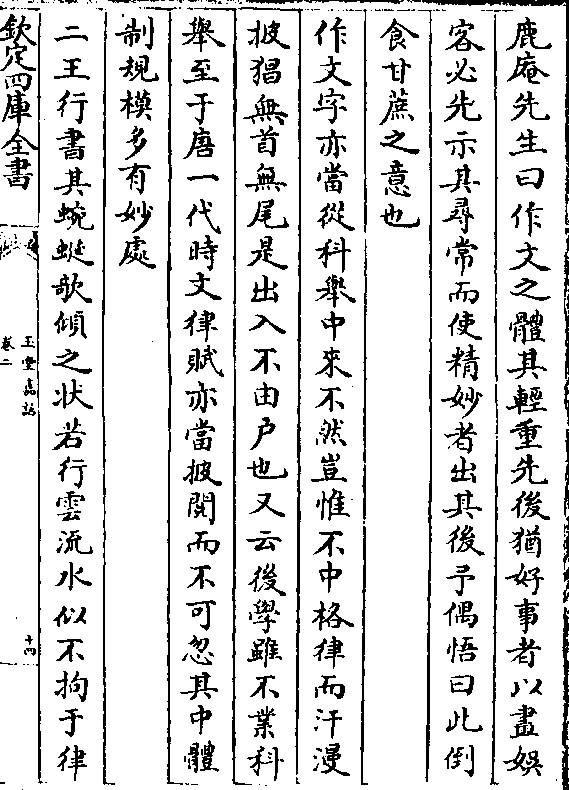 鹿庵先生曰作文之體其輕重先後猶好事者以畫娛
客必先示其尋常而使精妙者出其後予偶悟曰此倒
食甘蔗之意也
作文字亦當從科舉中來不然豈惟不中格律而汗漫
披猖無首無尾是出入不由户也又云後學雖不業科
舉至于唐一代時文律賦亦當披閱而不可忽其中體
制規模多有妙處
二王行書其蜿蜒欹傾之状若行雲流水似不拘于律
欽定四庫全書
玉堂嘉話
卷二
十四